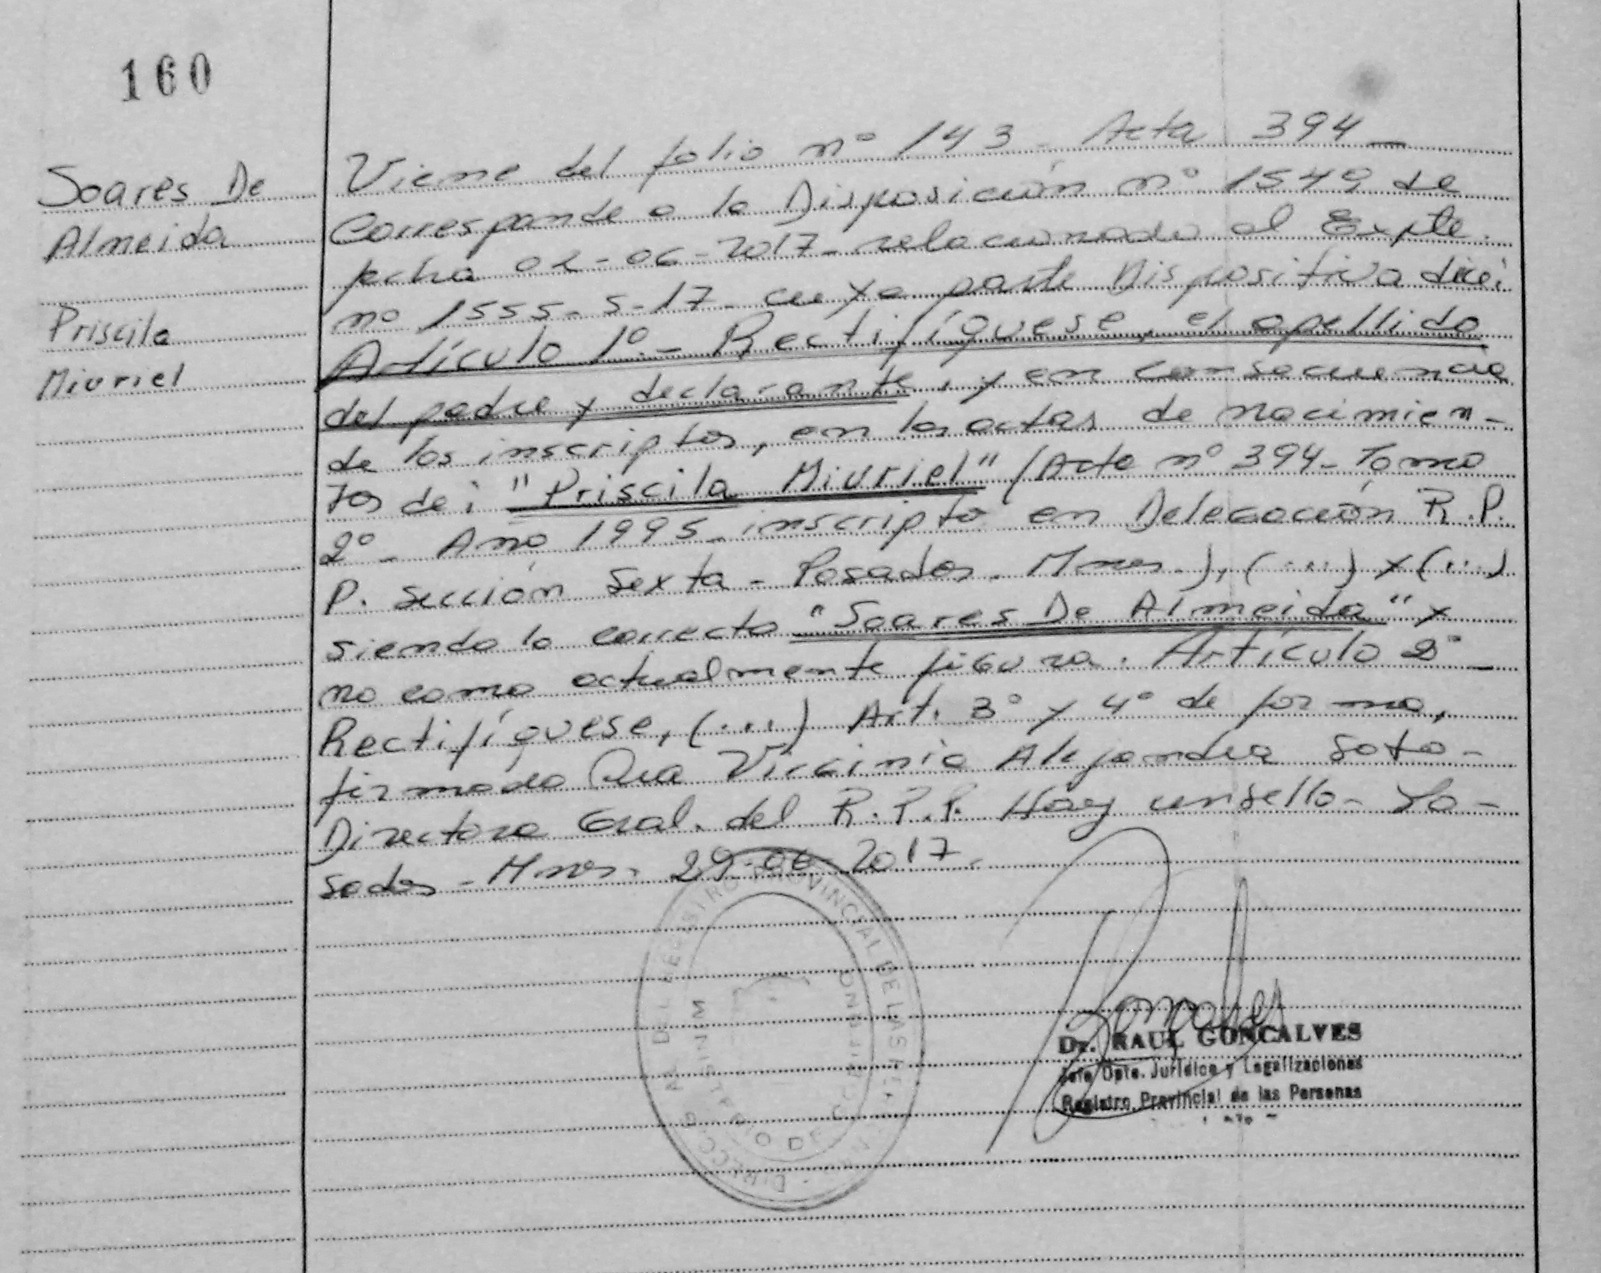 160
Soares De
Almeida
Priscila
Miuriel
Viene del folio nº 143 - Acta 394 -
Corresponde a la Disposición nº 1549 de
fecha 02-06-2017 - relacionado al Expte.
nº 1555-S-17 - cuya parte Dispositiva dice:
Artículo 1º - Rectifíquese, el apellido
del padre y declarante, y en consecuencia
de los inscriptos, en las actas de nacimien-
tos de: "Priscila Miuriel" (Acta nº 394 - Tomo
2º - Año 1995 - inscripta en Delegación R.P.
P. sección sexta - Posadas. Mnes.), (...) y (...)
siendo lo correcto "Soares De Almeida" y
no como actualmente figura. Artículo 2º -
Rectifíquese, (...) Art. 3º y 4º de forma,
firmado Dra Virginia Alejandra Soto -
Directora Gral. del R.P.P. Hay un sello - Po-
sadas - Mnes. 29-06-2017.
DIRECC. GRAL. DEL REGISTRO PROVINCIAL DE LAS PER
MINISTERIO DE GOBIERNO
Dr. RAUL GONCALVES
Jefe Dpto. Jurídico y Legalizaciones
Registro Provincial de las Personas